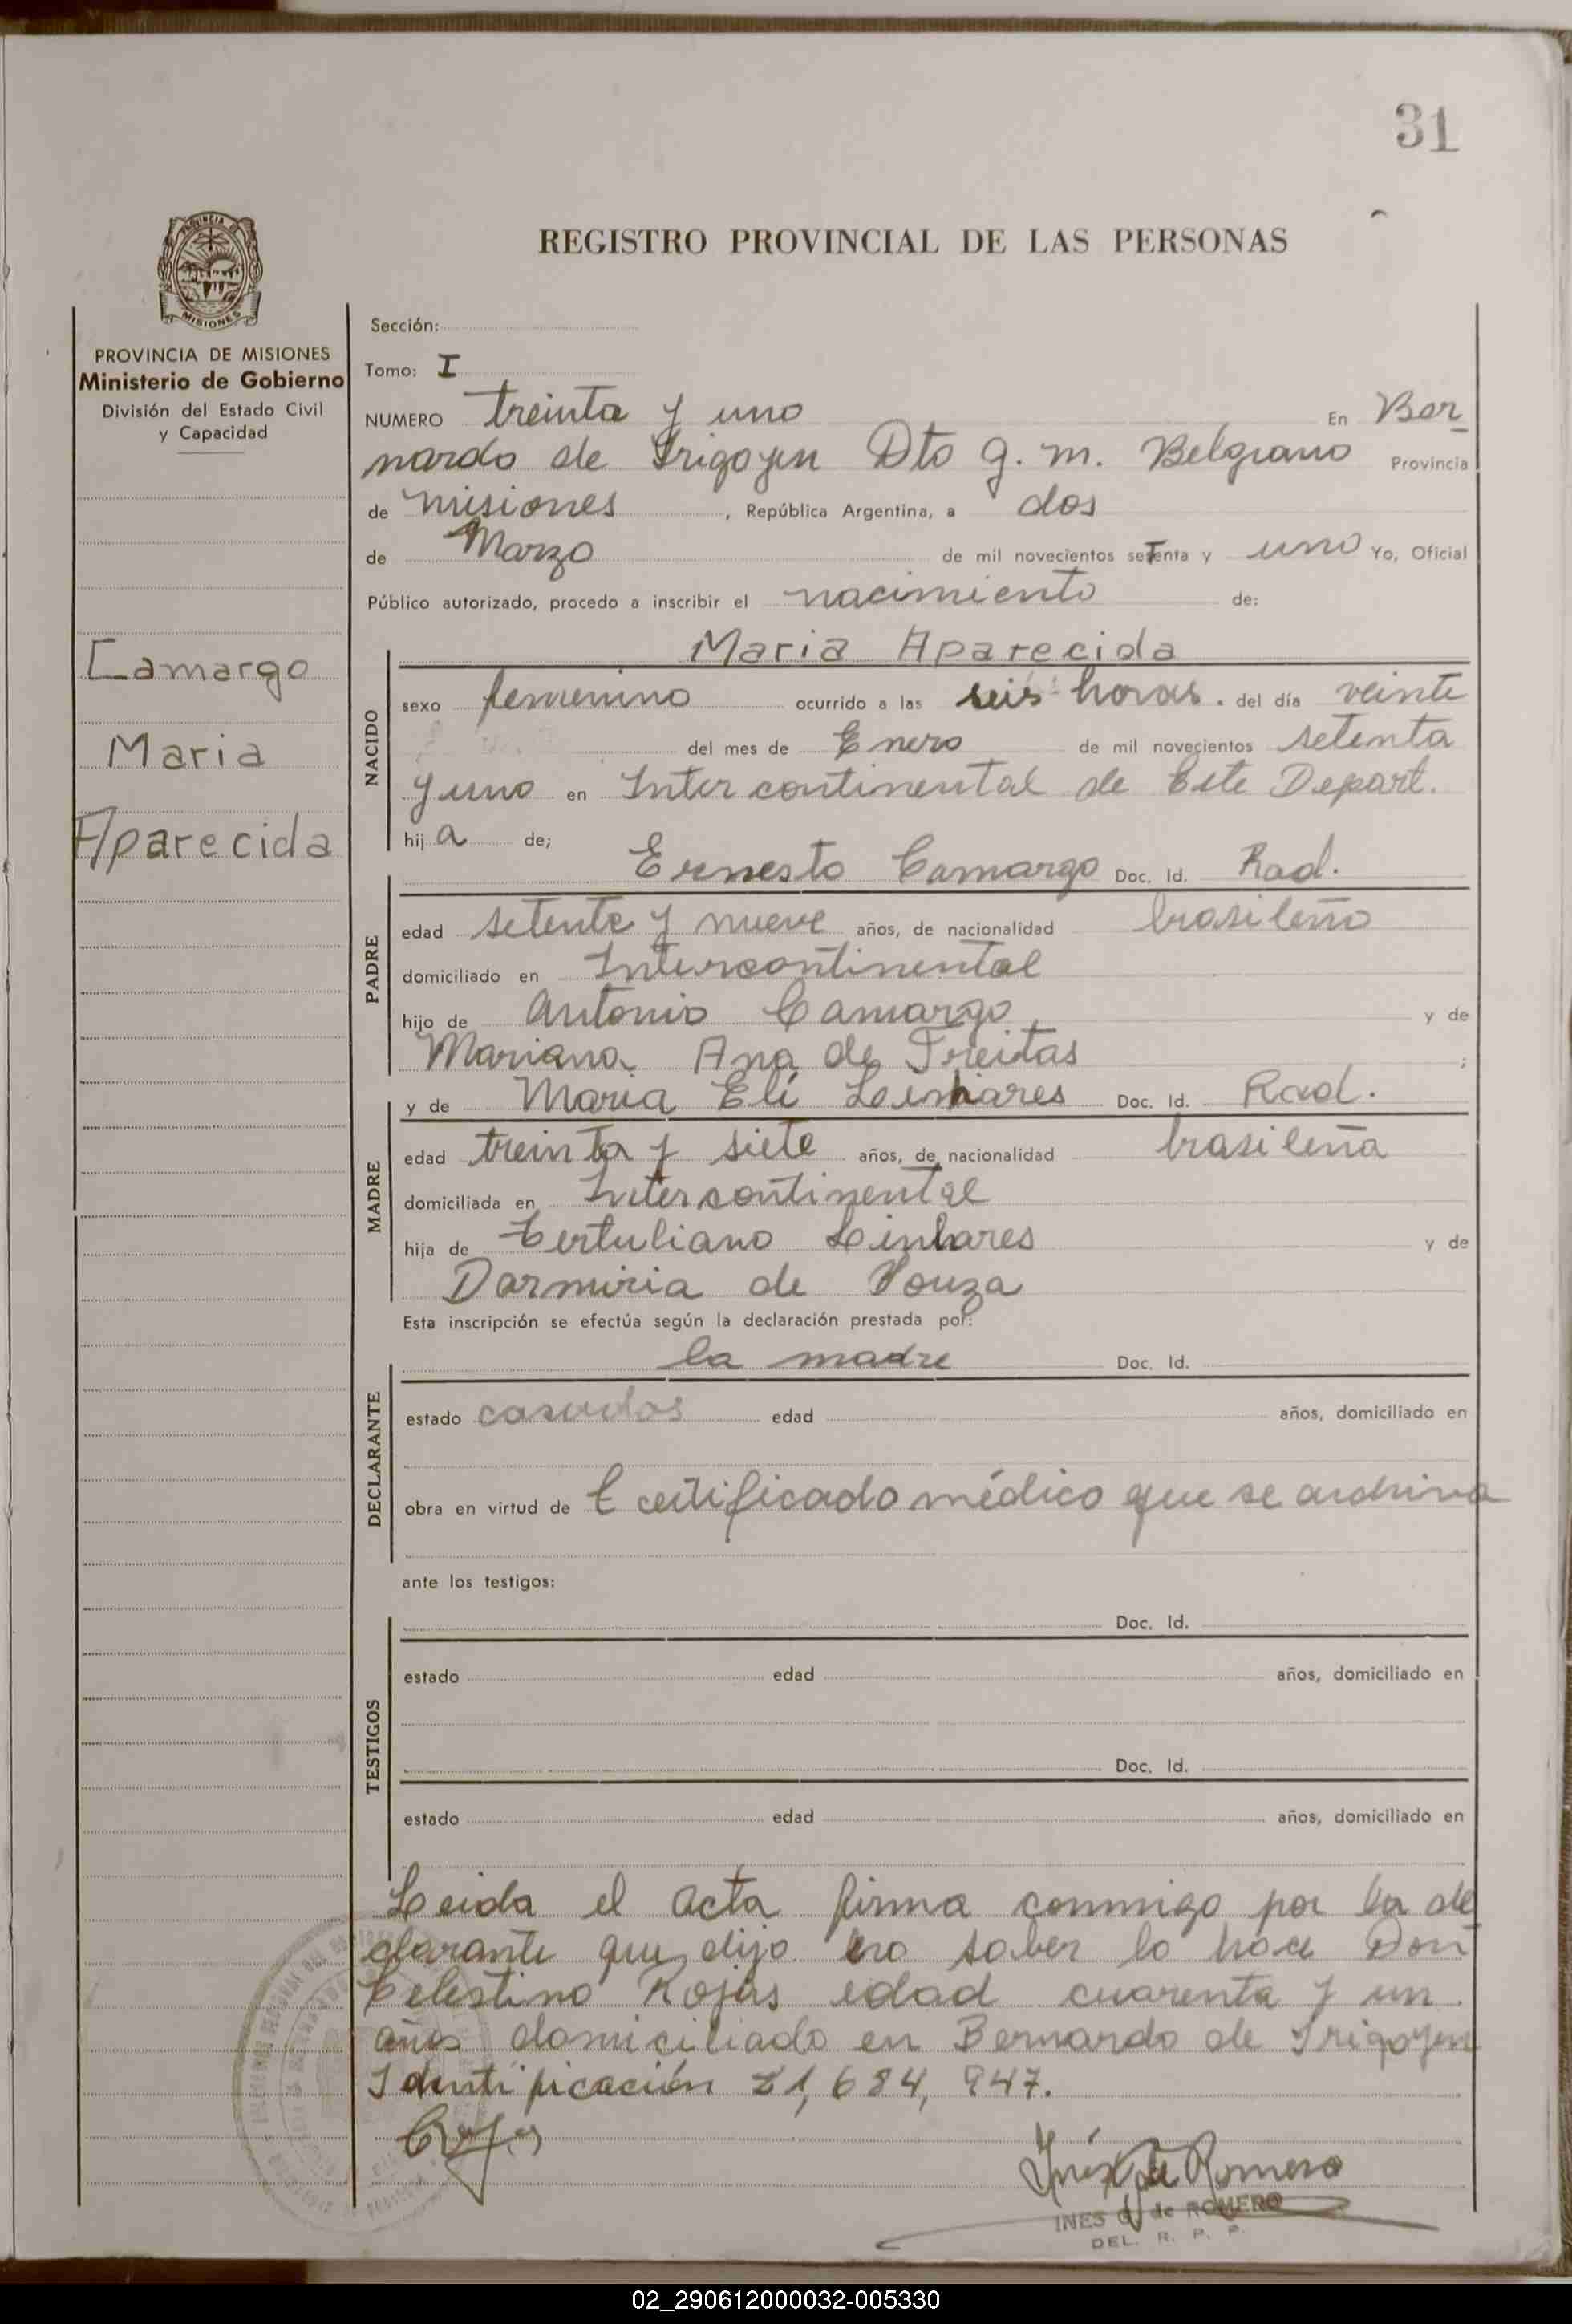 31
REGISTRO PROVINCIAL DE LAS PERSONAS
MISIONES
PROVINCIA DE MISIONES
Ministerio de Gobierno
División del Estado Civil
y Capacidad
Camargo
Maria
Aparecida
Sección:
Tomo: I
NUMERO treinta y uno En Ber-
nardo de Irigoyen Dto G. M. Belgrano Provincia
de Misiones, República Argentina, a dos
de Marzo de mil novecientos setenta y uno Yo, Oficial
Público autorizado, procedo a inscribir el nacimiento de:
Maria Aparecida
NACIDO
sexo femenino ocurrido a las seis horas. del día veinte
del mes de Enero de mil novecientos setenta
y uno en Intercontinental de Este Depart.
hija de;
Ernesto Camargo Doc. Id. Rad.
PADRE
edad setente y nueve años, de nacionalidad brasileño
domiciliado en Intercontinental
hijo de Antonio Camargo y de
Mariana Ana de Freitas ;
y de Maria Eli Leinhares Doc. Id. Rad.
MADRE
edad treinta y siete años, de nacionalidad brasileña
domiciliada en Intercontinental
hija de Tertuliano Leinhares y de
Darmiria de Souza
Esta inscripción se efectúa según la declaración prestada por:
la madre Doc. Id.
DECLARANTE
estado casados edad años, domiciliado en
obra en virtud de certificado médico que se archiva
ante los testigos:
Doc. Id.
TESTIGOS
estado edad años, domiciliado en
Doc. Id.
estado edad años, domiciliado en
Leida el acta firma conmigo por la de
clarante que dijo no saber lo hace Don
Celestino Rojas edad cuarenta y un
años domiciliado en Bernardo de Irigoyen
Identificación 21,684,947.
Inés de Romero
INES G. de ROMERO
DEL. R. P. P.
02_290612000032-005330